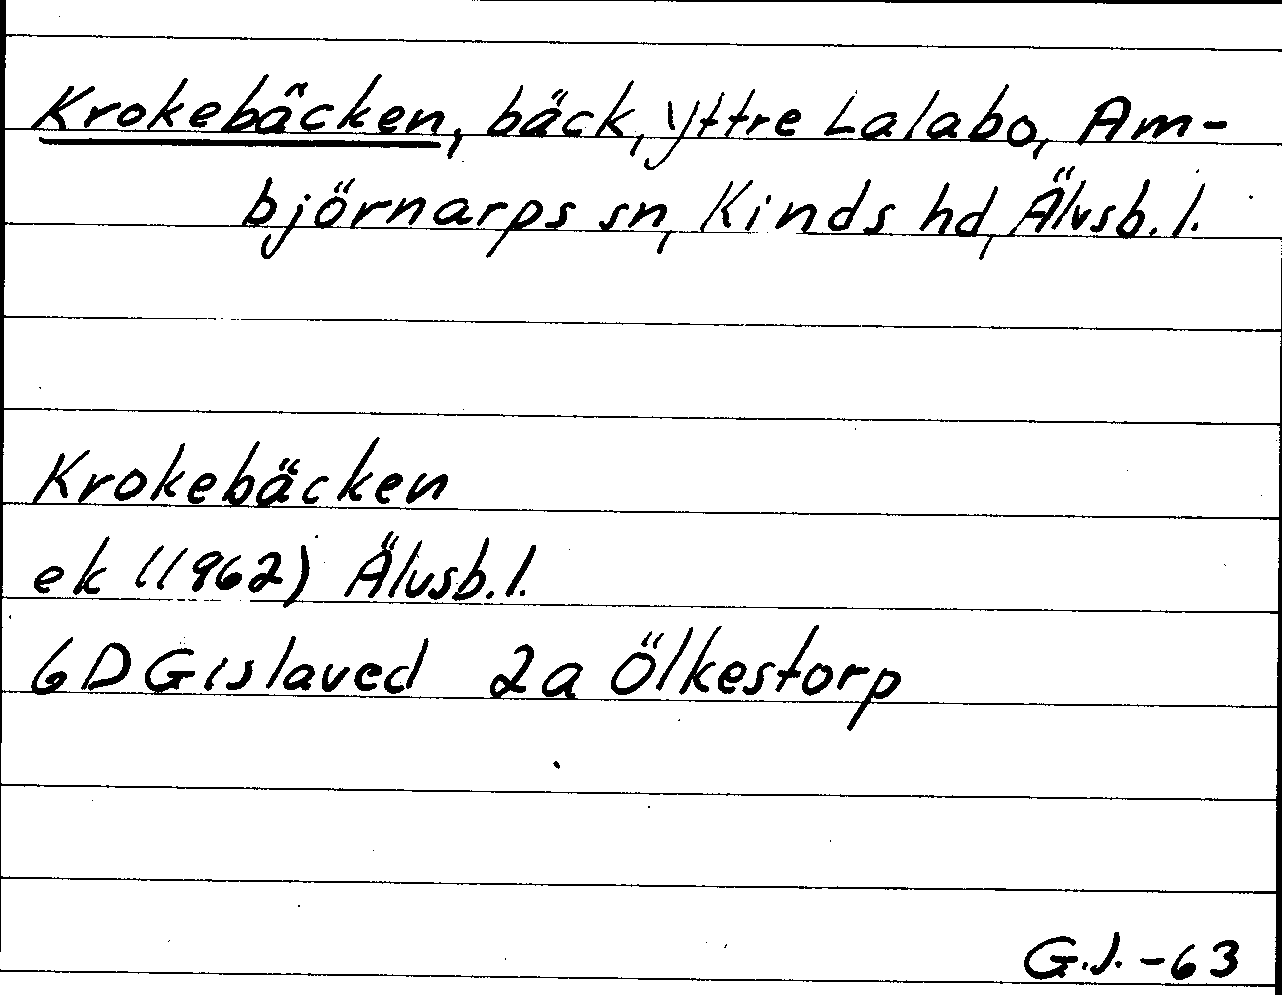 Krokebäcken, bäck, Yttre Lalabo, Am-
björnarps sn, Kinds hd, Älvsb. l.
Krokebäcken
ek (1962) Älvsb. l.
6D Gislaved 2a Ölkestorp
G.J. -63